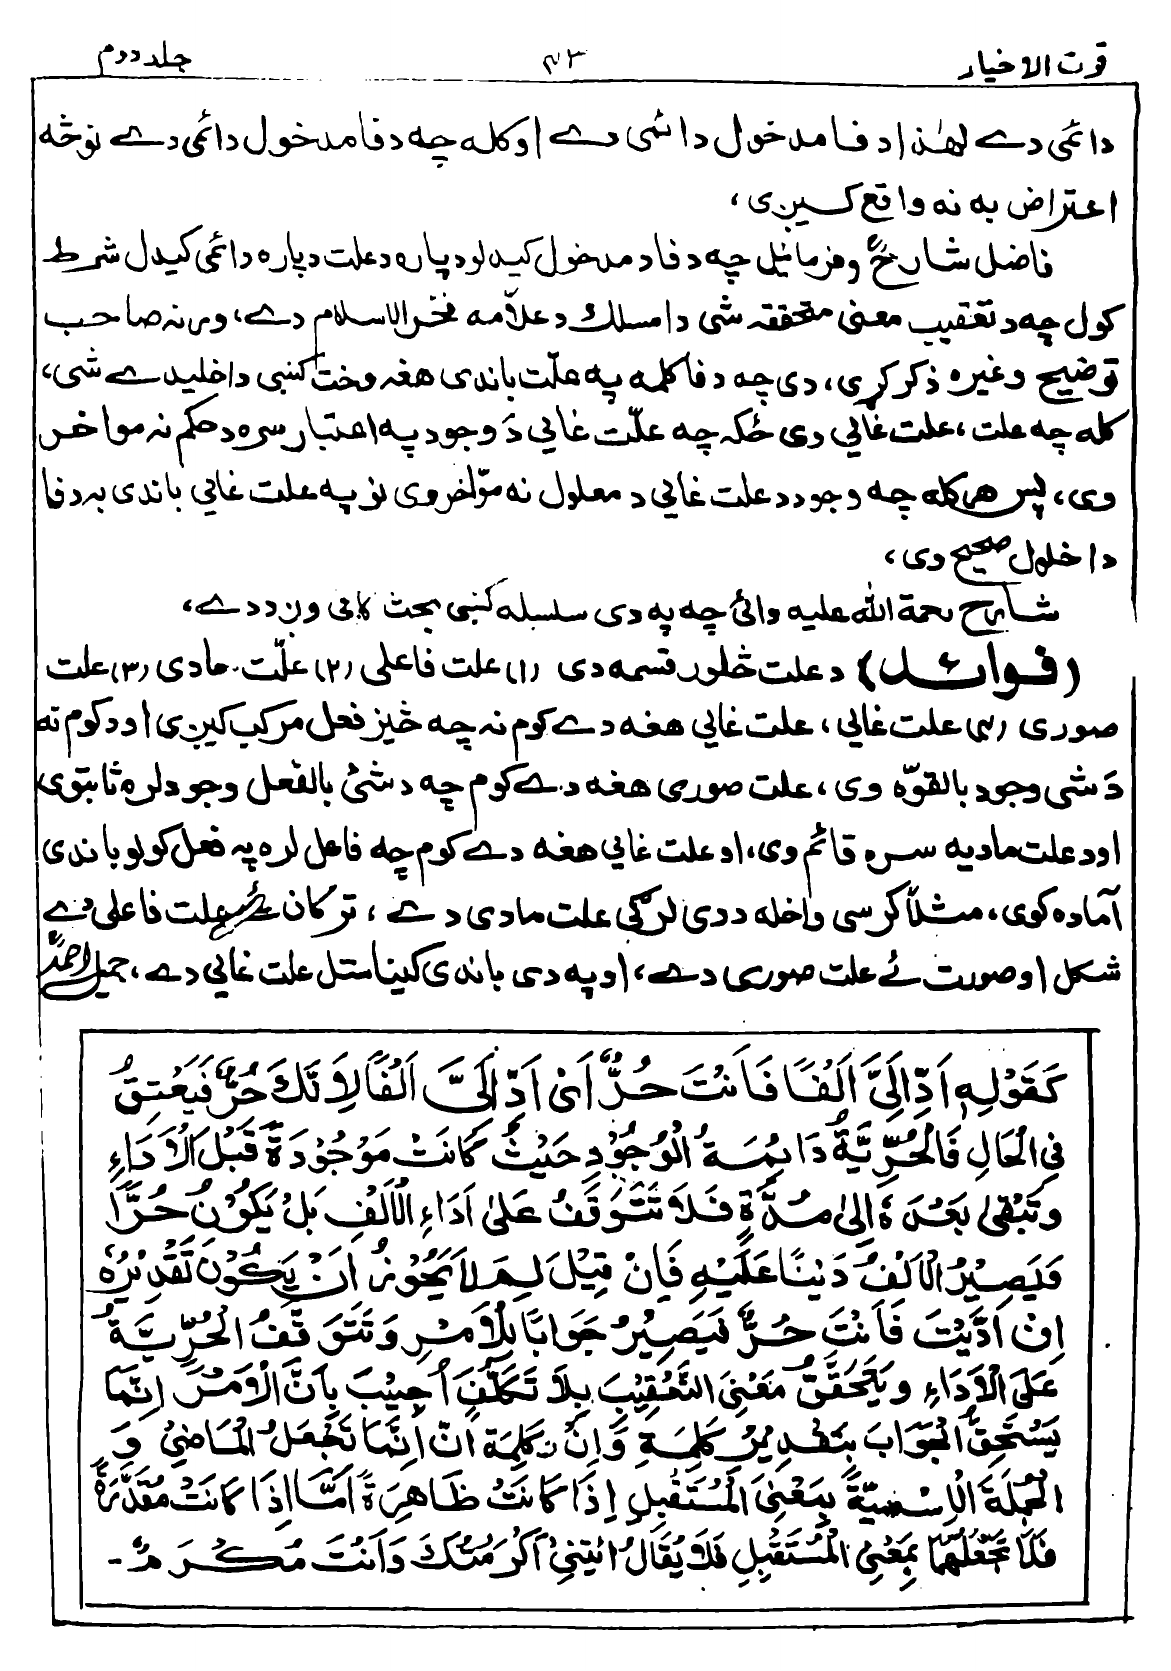 قوت الاخیار ۴۳ جلد دوم
دائمی دے لهٰذا د فا مدخول دائمی دے او کله چه د فا مدخول دائمی دے نو څه
اعتراض به نه واقع کیږی،
فاضل شارحؒ وفرمائیل چه د فا د مدخول کیدلو دپاره د علت دپاره دائمی کیدل شرط
کول چه د تعقیب معنیٰ متحققه شی دا مسلك د علامه فخر الاسلام دے، ورنه صاحب
توضیح وغیره ذکر کړی، دی چه د فا کلمه په علّت باندی هغه وخت کښی داخلیدے شی،
کله چه علت، علت غائی دی ځکه چه علّت غائی دَ وجود په اعتبار سره د حکم نه مواخر
وی، پس هرکله چه وجود د علت غائی د معلول نه مؤاخر وی نو په علت غائی باندی به د فا
داخلول صحیح وی،
شارح رحمة الله علیه وائی چه په دی سلسله کښی بحث کافی وږد دے،
(فوائد) د علت څلور قسمه دی (۱) علت فاعلی (۲) علّت مادی (۳) علت
صوری (۴) علت غائی، علت غائی هغه دے کوم نه چه څیز فعل مرکب کیږی او د کوم نه
دَ شی وجود بالقوّه وی، علت صوری هغه دے کوم چه د شیٔ بالفعل وجود لره ثابتوی
او د علت مادیه سره قائم وی، او علت غائی هغه دے کوم چه فاعل لره په فعل کولو باندی
آماده کوی، مثلاً کرسی واخله د دی لرگی علت مادی دے، ترکان ئے علت فاعلی دے
شکل او صورت ئے علت صوری دے، او په دی باندی کیناستل علت غائی دے، جمیل احمدؒ
كَقَوْلِهٖ اَدِّ اِلَیَّ اَلْفًا فَاَنْتَ حُرٌّ اَیْ اَدِّ اِلَیَّ اَلْفًا لِاَنَّكَ حُرٌّ فَیَعْتِقُ
فِی الْحَالِ فَالْحُرِّیَّةُ دَائِمَةُ الْوُجُوْدِ حَیْثُ كَانَتْ مَوْجُوْدَةً قَبْلَ الْاَدَاءِ
وَتَبْقیٰ بَعْدَهٗ اِلیٰ مُدَّةٍ فَلَا تَتَوَقَّفُ عَلیٰ اَدَاءِ الْاَلْفِ بَلْ یَكُوْنُ حُرًّا
فَیَصِیْرُ الْاَلْفُ دَیْنًا عَلَیْهِ فَاِنْ قِیْلَ لِمَ لَا یَجُوْزُ اَنْ یَكُوْنَ تَقْدِیْرُهٗ
اِنْ اَدَّیْتَ فَاَنْتَ حُرٌّ فَیَصِیْرُ جَوَابًا لِلْاَمْرِ وَتَتَوَقَّفُ الْحُرِّیَّةُ
عَلَی الْاَدَاءِ وَیَتَحَقَّقُ مَعْنَی التَّعْقِیْبِ بِلَا تَكَلُّفٍ اُجِیْبَ بِاَنَّ الْاَمْرَ اِنَّمَا
یَسْتَحِقُّ الْجَوَابَ بِتَقْدِیْرِ كَلِمَةِ وَاِنْ كَلِمَةَ اَنْ اِنَّمَا تَجْعَلُ الْمَاضِیَ وَ
الْجُمْلَةَ الْاِسْمِیَّةَ بِمَعْنَی الْمُسْتَقْبِلِ اِذَا كَانَتْ ظَاهِرَةً اَمَّا اِذَا كَانَتْ مُقَدَّرَةً
فَلَا تَجْعَلُهُمَا بِمَعْنَی الْمُسْتَقْبِلِ فَلَا یُقَالُ ائْتِنِیْ اَكْرَمْتُكَ وَاَنْتَ مُكْرَمٌ-